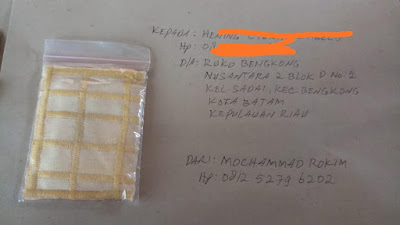 KEPADA : HENING
HP : 08
D/A : RUKO BENGKONG
NUSANTARA 2 BLOK D NO : 2
KEL SADAI, KEC BENGKONG
KOTA BATAM
KEPULAUAN RIAU
DARI : MOCHAMMAD ROKIM
HP : 0812 5279 6202